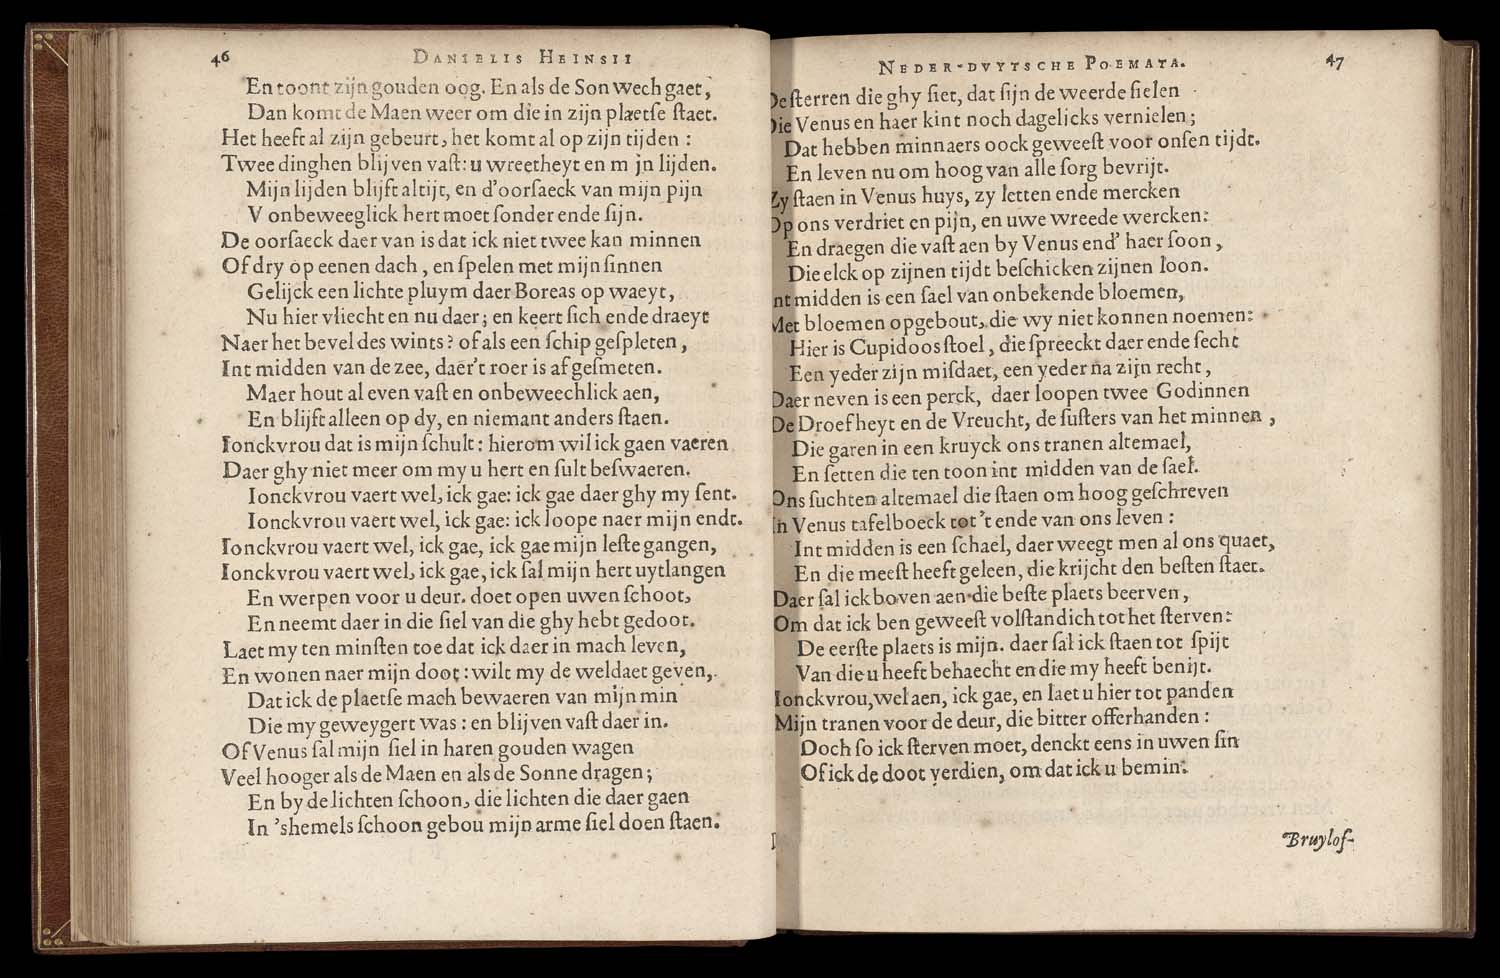 46 DANIELIS HEINSII
En toont zijn gouden oog. En als de Son wech gaet,
Dan komt de Maen weer om die in zijn plaetſe ſtaet.
Het heeft al zijn gebeurt, het komt al op zijn tijden :
Twee dinghen blijven vaſt: u wreetheyt en mijn lijden.
Mijn lijden blijft altijt, en d'oorſaeck van mijn pijn
V onbeweeglick hert moet ſonder ende ſijn.
De oorſaeck daer van is dat ick niet twee kan minnen
Of dry op eenen dach, en ſpelen met mijn ſinnen
Gelijck een lichte pluym daer Boreas op waeyt,
Nu hier vliecht en nu daer; en keert ſich ende draeyt
Naer het bevel des wints? of als een ſchip geſpleten,
Int midden van de zee, daer't roer is afgeſmeten.
Maer hout al even vaſt en onbeweechlick aen,
En blijft alleen op dy, en niemant anders ſtaen.
Ionckvrou dat is mijn ſchult: hierom wil ick gaen vaeren
Daer ghy niet meer om my u hert en ſult beſwaeren.
Ionckvrou vaert wel, ick gae: ick gae daer ghy my ſent.
Ionckvrou vaert wel, ick gae: ick loope naer mijn endt.
Ionckvrou vaert wel, ick gae, ick gae mijn leſte gangen,
Ionckvrou vaert wel, ick gae, ick ſal mijn hert uytlangen
En werpen voor u deur. doet open uwen ſchoot,
En neemt daer in die ſiel van die ghy hebt gedoot.
Laet my ten minſten toe dat ick daer in mach leven,
En wonen naer mijn doot: wilt my de weldaet geven,
Dat ick de plaetſe mach bewaeren van mijn min
Die my geweygert was: en blijven vaſt daer in.
Of Venus ſal mijn ſiel in haren gouden wagen
Veel hooger als de Maen en als de Sonne dragen;
En by de lichten ſchoon, die lichten die daer gaen
In 'shemels ſchoon gebou mijn arme ſiel doen ſtaen.
NEDER-DVYTSCHE POEMATA. 47
De ſterren die ghy ſiet, dat ſijn de weerde ſielen
Die Venus en haer kint noch dagelicks vernielen;
Dat hebben minnaers oock geweeſt voor onſen tijdt.
En leven nu om hoog van alle ſorg bevrijt.
Zy ſtaen in Venus huys, zy letten ende mercken
Op ons verdriet en pijn, en uwe wreede wercken:
En draegen die vaſt aen by Venus end' haer ſoon,
Die elck op zijnen tijdt beſchicken zijnen loon.
Int midden is een ſael van onbekende bloemen,
Met bloemen opgebout, die wy niet konnen noemen:
Hier is Cupidoos ſtoel, die ſpreeckt daer ende ſecht
Een yeder zijn miſdaet, een yeder na zijn recht,
Daer neven is een perck, daer loopen twee Godinnen
De Droefheyt en de Vreucht, de ſuſters van het minnen,
Die garen in een kruyck ons tranen altemael,
En ſetten die ten toon int midden van de ſael.
Ons ſuchten altemael die ſtaen om hoog geſchreven
In Venus tafelboeck tot 't ende van ons leven :
Int midden is een ſchael, daer weegt men al ons quaet,
En die meeſt heeft geleen, die krijcht den beſten ſtaet.
Daer ſal ick boven aen die beſte plaets beerven,
Om dat ick ben geweeſt volſtandich tot het ſterven:
De eerſte plaets is mijn. daer ſal ick ſtaen tot ſpijt
Van die u heeft behaecht en die my heeft benijt.
Ionckvrou, wel aen, ick gae, en laet u hier tot panden
Mijn tranen voor de deur, die bitter offerhanden :
Doch ſo ick ſterven moet, denckt eens in uwen ſin
Of ick de doot verdien, om dat ick u bemin.
Bruylof-